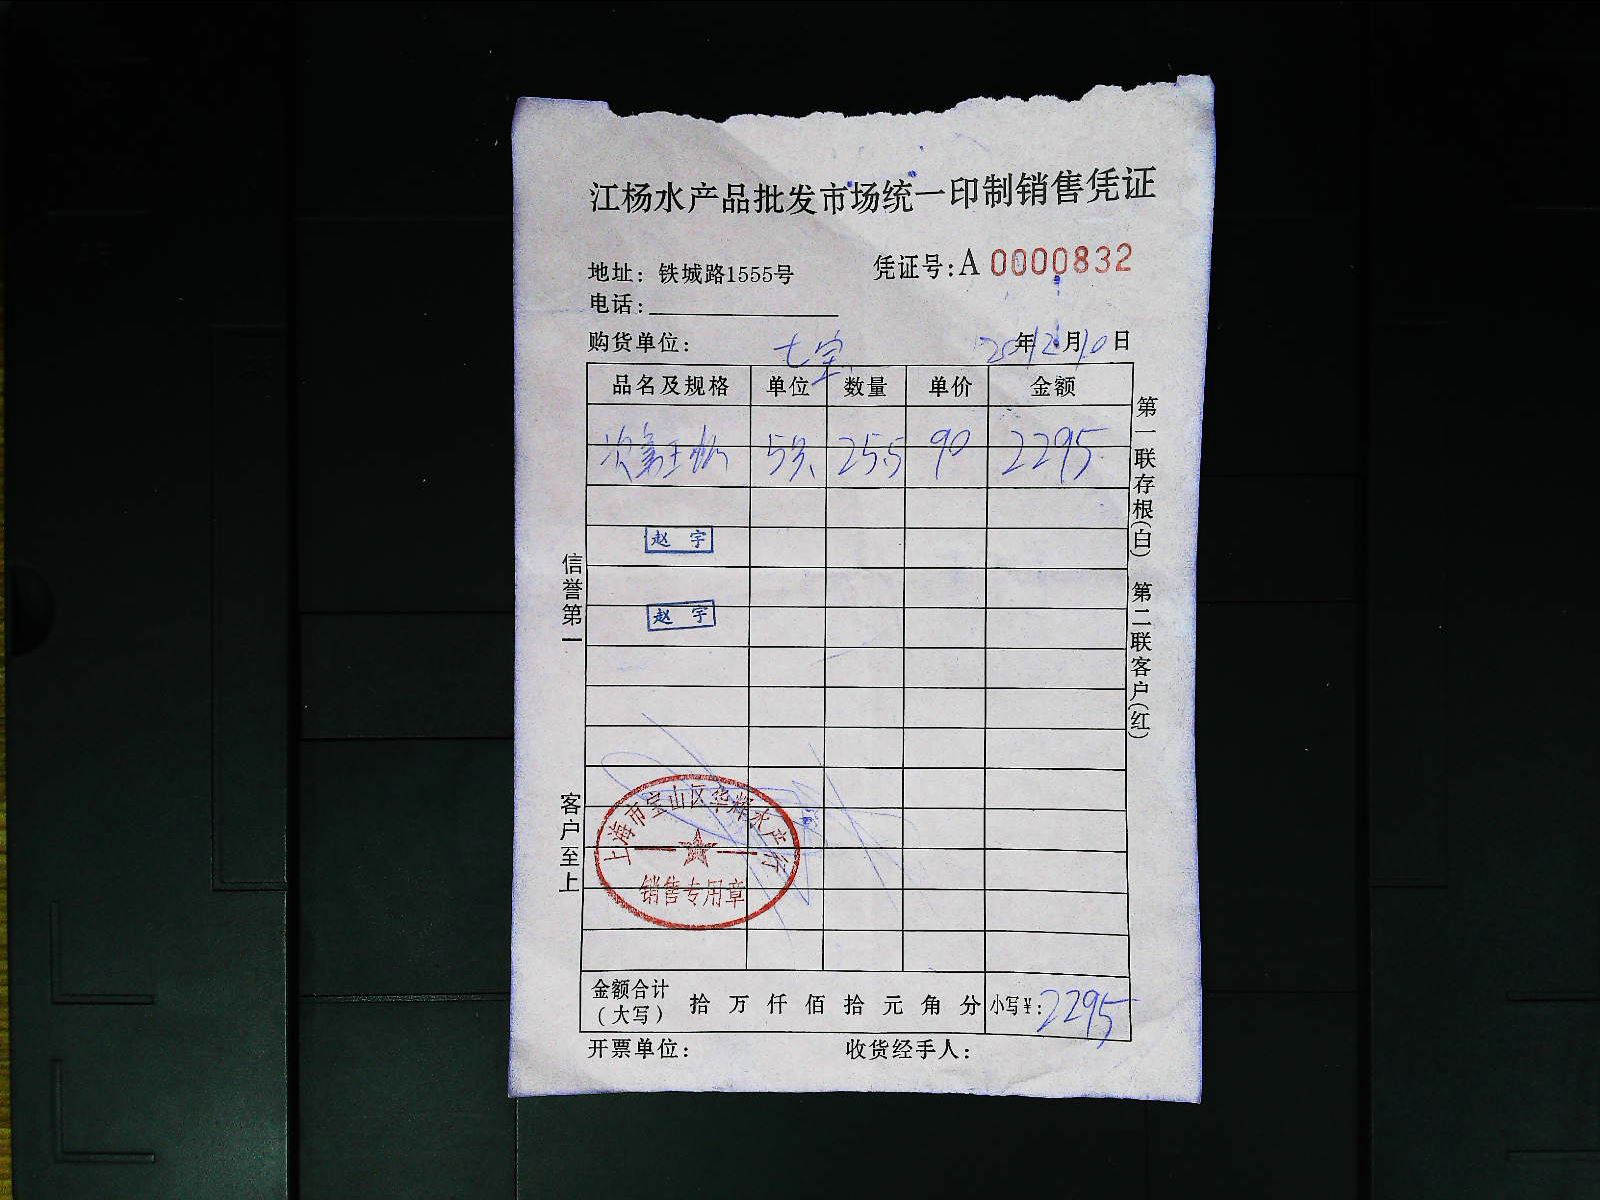 江杨水产品批发市场统一印制销售凭证
地址：铁城路1555号
凭证号：A 0000832
电话：
购货单位： 七宝
20年12月10日
品名及规格 单位 数量 单价 金额
25.5 90 2295
赵 宇
赵 宇
上海市宝山区华辉水产行
销售专用章
金额合计（大写） 拾 万 仟 佰 拾 元 角 分 小写¥：2295
开票单位： 收货经手人：
信誉第一
客户至上
第一联存根（白）
第二联客户（红）